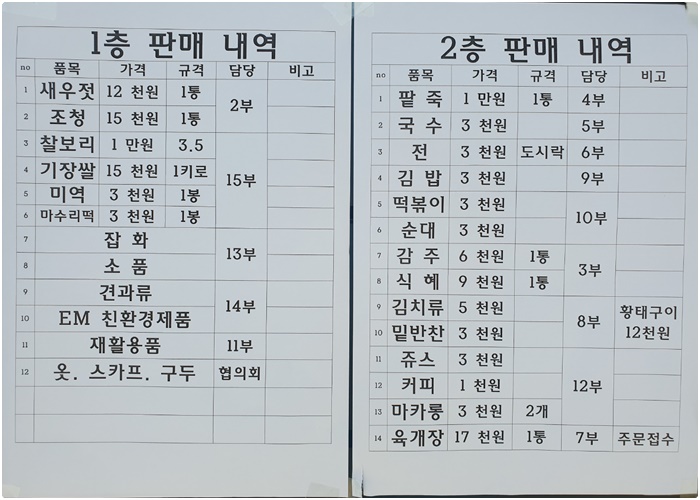 1층 판매 내역
no 품목 가격 규격 담당 비고
1 새우젓 12 천원 1통 2부
2 조청 15 천원 1통
3 찰보리 1 만원 3.5 15부
4 기장쌀 15 천원 1키로
5 미역 3 천원 1봉
6 마수리떡 3 천원 1봉
7 잡 화 13부
8 소 품
9 견과류 14부
10 EM 친환경제품
11 재활용품 11부
12 옷. 스카프. 구두 협의회
2층 판매 내역
no 품목 가격 규격 담당 비고
1 팥 죽 1 만원 1통 4부
2 국 수 3 천원 5부
3 전 3 천원 도시락 6부
4 김 밥 3 천원 9부
5 떡볶이 3 천원 10부
6 순대 3 천원
7 감 주 6 천원 1통 3부
8 식 혜 9 천원 1통
9 김치류 5 천원 8부 황태구이
10 밑반찬 3 천원 12천원
11 쥬스 3 천원 12부
12 커피 1 천원
13 마카롱 3 천원 2개
14 육개장 17 천원 1통 7부 주문접수